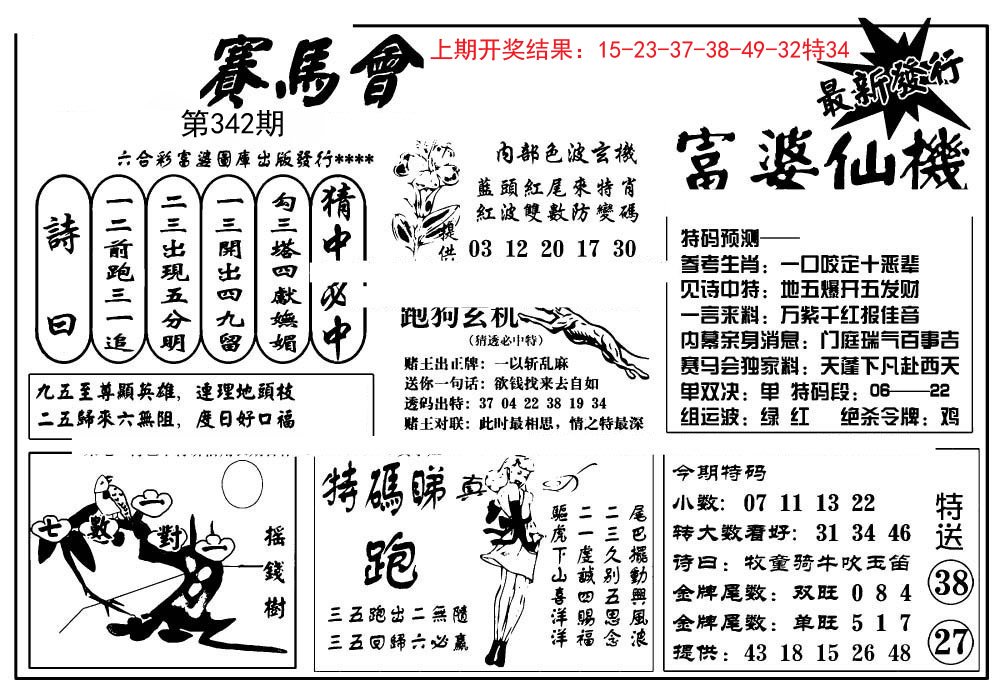 上期开奖结果：15-23-37-38-49-32特34
賽馬會
第342期
最新發行
六合彩富婆圖庫出版發行****
富婆仙機
詩曰
一二前跑三一追
二三出現五分明
一三開出四九留
勾三塔四獻嫵媚
猜中必中
內部色波玄機
藍頭紅尾來特肖
紅波雙數防變碼
提供
03 12 20 17 30
特码预测——
参考生肖：一口咬定十恶辈
见诗中特：地五爆开五发财
一言来料：万紫千红报佳音
内幕亲身消息：门庭瑞气百事吉
赛马会独家料：天蓬下凡赴西天
单双决：单 特码段：06——22
组运波：绿 红 绝杀令牌：鸡
跑狗玄机
(猜透必中特)
赌王出正牌：一以斩乱麻
送你一句话：欲钱找来去自如
透码出特：37 04 22 38 19 34
赌王对联：此时最相思，情之特最深
九五至尊顯英雄，連理地頭枝
二五歸來六無阻，度日好口福
七數一對一
搖錢樹
特碼睇真
跑
三五跑出二無隨
三五回歸六必贏
尾巴擺動興風浪
二三久別五思念
二一虔誠四賜福
驅虎下山喜洋洋
今期特码
小数：07 11 13 22
转大数看好：31 34 46
诗曰：牧童骑牛吹玉笛
金牌尾数：双旺 0 8 4
金牌尾数：单旺 5 1 7
提供：43 18 15 26 48
特送
38
27